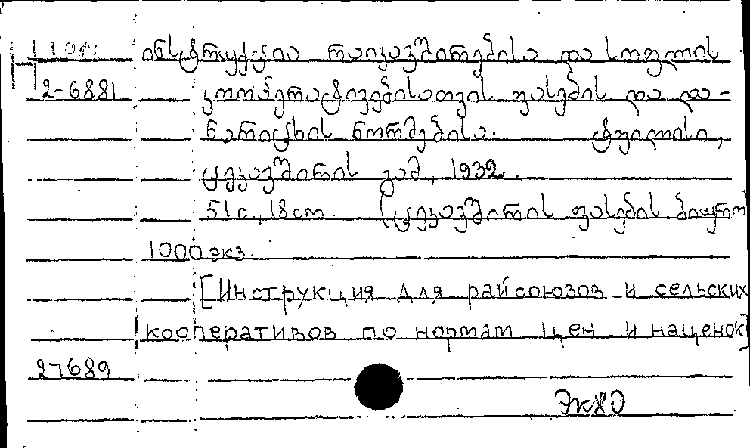 ინსტრუქცია რაიკავშირებისა და სოფლის
2-6881 კოოპერატივებისათვის ფასების და და-
ნარიცხის ნორმებისა. ტფილისი,
ცეკავშირის გამ., 1932.
51 с., 18 cm. (ცეკავშირის ფასების ბიურო
1000 экз.
[Инструкция для райсоюзов и сельских
кооперативов по нормам цен и наценок]
27689